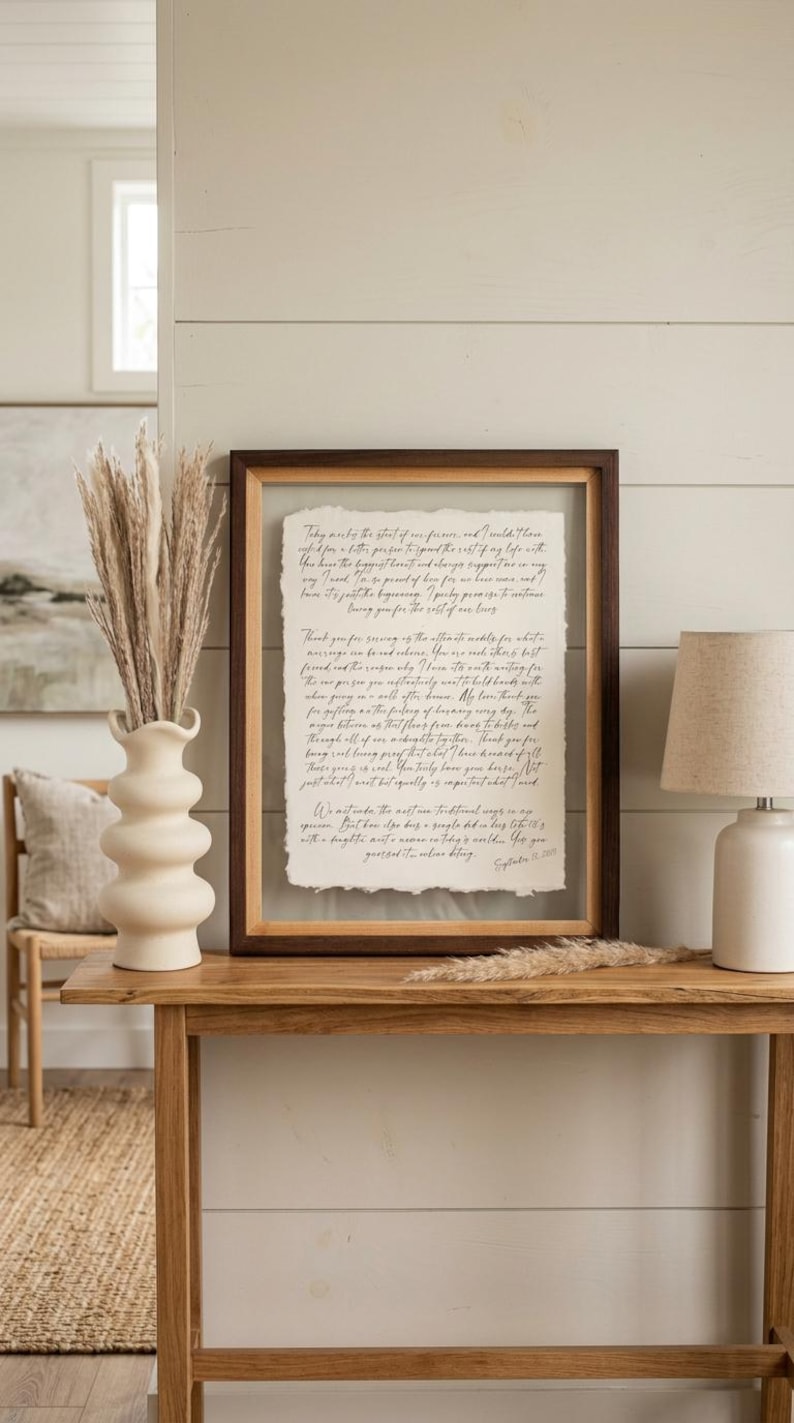 Today marks the start of our forever, and I couldn't have
asked for a better person to spend the rest of my life with.
You have the biggest heart and always support me in any
way I need. I'm so proud of how far we have come, and I
know it's just the beginning. I pinky promise to continue
loving you for the rest of our lives
Thank you for serving as the ultimate models for what a
marriage can be and achieve. You are each other's best
friend, and the reason why I knew it's worth waiting for
the one person you instinctively want to hold hands with
when going on a walk after dinner. My love, thank you
for gifting me this feeling of harmony every day. The
magic between us that flows from to and
through all of our midnights together. Thank you for
being and living proof that what I have dreamed of all
these years is real. You truly know your horse. Not
just what I want, but equally as important what I need.
We met under the most non traditional ways in my
opinion. But how else does a single dad in his late
with a daughter meet a woman in today's world... Yup you
guessed it... online dating.
September 13, 2019